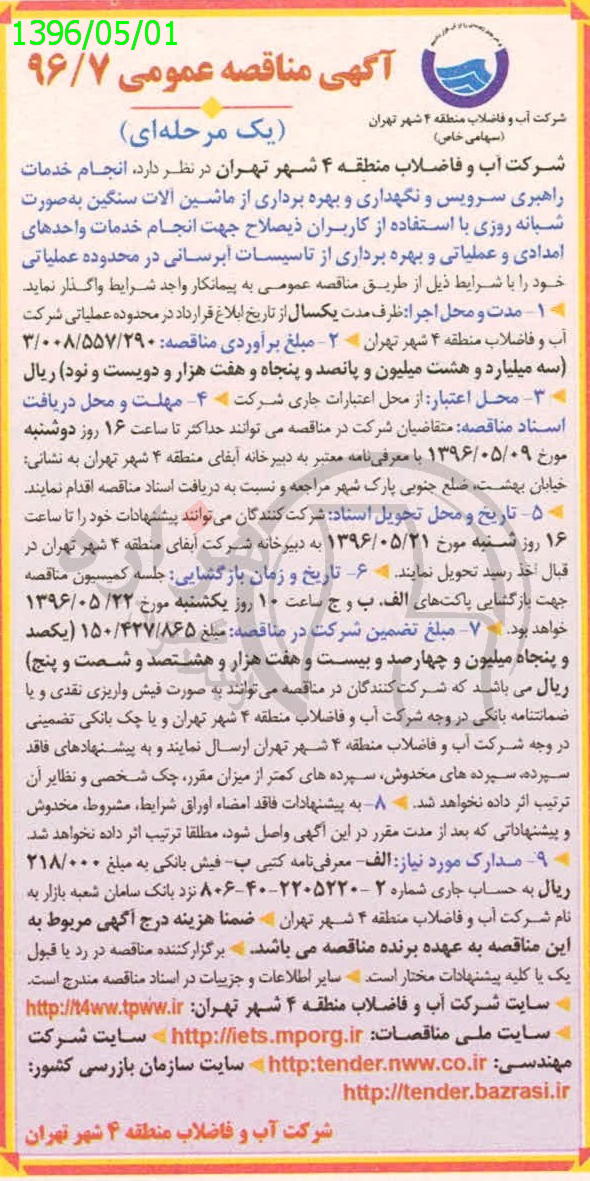 1396/05/01
آگهی مناقصه عمومی ۹۶/۷
(یک مرحله‌ای)
شرکت آب و فاضلاب منطقه ۴ شهر تهران
(سهامی خاص)
شرکت آب و فاضلاب منطقه ۴ شهر تهران در نظر دارد، انجام خدمات
راهبری سرویس و نگهداری و بهره برداری از ماشین آلات سنگین به‌صورت
شبانه روزی با استفاده از کاربران ذیصلاح جهت انجام خدمات واحدهای
امدادی و عملیاتی و بهره برداری از تاسیسات آبرسانی در محدوده عملیاتی
خود را با شرایط ذیل از طریق مناقصه عمومی به پیمانکار واجد شرایط واگذار نماید.
۱- مدت و محل اجرا: ظرف مدت یکسال از تاریخ ابلاغ قرارداد در محدوده عملیاتی شرکت
آب و فاضلاب منطقه ۴ شهر تهران ۲- مبلغ برآوردی مناقصه: ۳/۰۰۸/۵۵۷/۲۹۰
(سه میلیارد و هشت میلیون و پانصد و پنجاه و هفت هزار و دویست و نود) ریال
۳- محل اعتبار: از محل اعتبارات جاری شرکت ۴- مهلت و محل دریافت
اسناد مناقصه: متقاضیان شرکت در مناقصه می توانند حداکثر تا ساعت ۱۶ روز دوشنبه
مورخ ۱۳۹۶/۰۵/۰۹ با معرفی‌نامه معتبر به دبیرخانه آبفای منطقه ۴ شهر تهران به نشانی:
خیابان بهشت، ضلع جنوبی پارک شهر مراجعه و نسبت به دریافت اسناد مناقصه اقدام نمایند.
۵- تاریخ و محل تحویل اسناد: شرکت‌کنندگان می‌توانند پیشنهادات خود را تا ساعت
۱۶ روز شنبه مورخ ۱۳۹۶/۰۵/۲۱ به دبیرخانه شرکت آبفای منطقه ۴ شهر تهران در
قبال اخذ رسید تحویل نمایند. ۶- تاریخ و زمان بازگشایی: جلسه کمیسیون مناقصه
جهت بازگشایی پاکت‌های الف، ب و ج ساعت ۱۰ روز یکشنبه مورخ ۱۳۹۶/۰۵/۲۲
خواهد بود. ۷- مبلغ تضمین شرکت در مناقصه: مبلغ ۱۵۰/۴۲۷/۸۶۵ (یکصد
و پنجاه میلیون و چهارصد و بیست و هفت هزار و هشتصد و شصت و پنج)
ریال می باشد که شرکت‌کنندگان در مناقصه می‌توانند به صورت فیش واریزی نقدی و یا
ضمانتنامه بانکی در وجه شرکت آب و فاضلاب منطقه ۴ شهر تهران و یا چک بانکی تضمینی
در وجه شرکت آب و فاضلاب منطقه ۴ شهر تهران ارسال نمایند و به پیشنهادهای فاقد
سپرده، سپرده های مخدوش، سپرده های کمتر از میزان مقرر، چک شخصی و نظایر آن
ترتیب اثر داده نخواهد شد. ۸- به پیشنهادات فاقد امضاء اوراق شرایط، مشروط، مخدوش
و پیشنهاداتی که بعد از مدت مقرر در این آگهی واصل شود، مطلقا ترتیب اثر داده نخواهد شد.
۹- مدارک مورد نیاز: الف- معرفی‌نامه کتبی ب- فیش بانکی به مبلغ ۲۱۸/۰۰۰
ریال به حساب جاری شماره ۲-۲۲۰۵۲۲۰-۴۰-۸۰۶ نزد بانک سامان شعبه بازار به
نام شرکت آب و فاضلاب منطقه ۴ شهر تهران ضمنا هزینه درج آگهی مربوط به
این مناقصه به عهده برنده مناقصه می باشد. برگزارکننده مناقصه در رد یا قبول
یک یا کلیه پیشنهادات مختار است. سایر اطلاعات و جزییات در اسناد مناقصه مندرج است.
سایت شرکت آب و فاضلاب منطقه ۴ شهر تهران: http://t4ww.tpww.ir
سایت ملی مناقصات: http://iets.mporg.ir سایت شرکت
مهندسی: http:tender.nww.co.ir سایت سازمان بازرسی کشور:
http://tender.bazrasi.ir
شرکت آب و فاضلاب منطقه ۴ شهر تهران